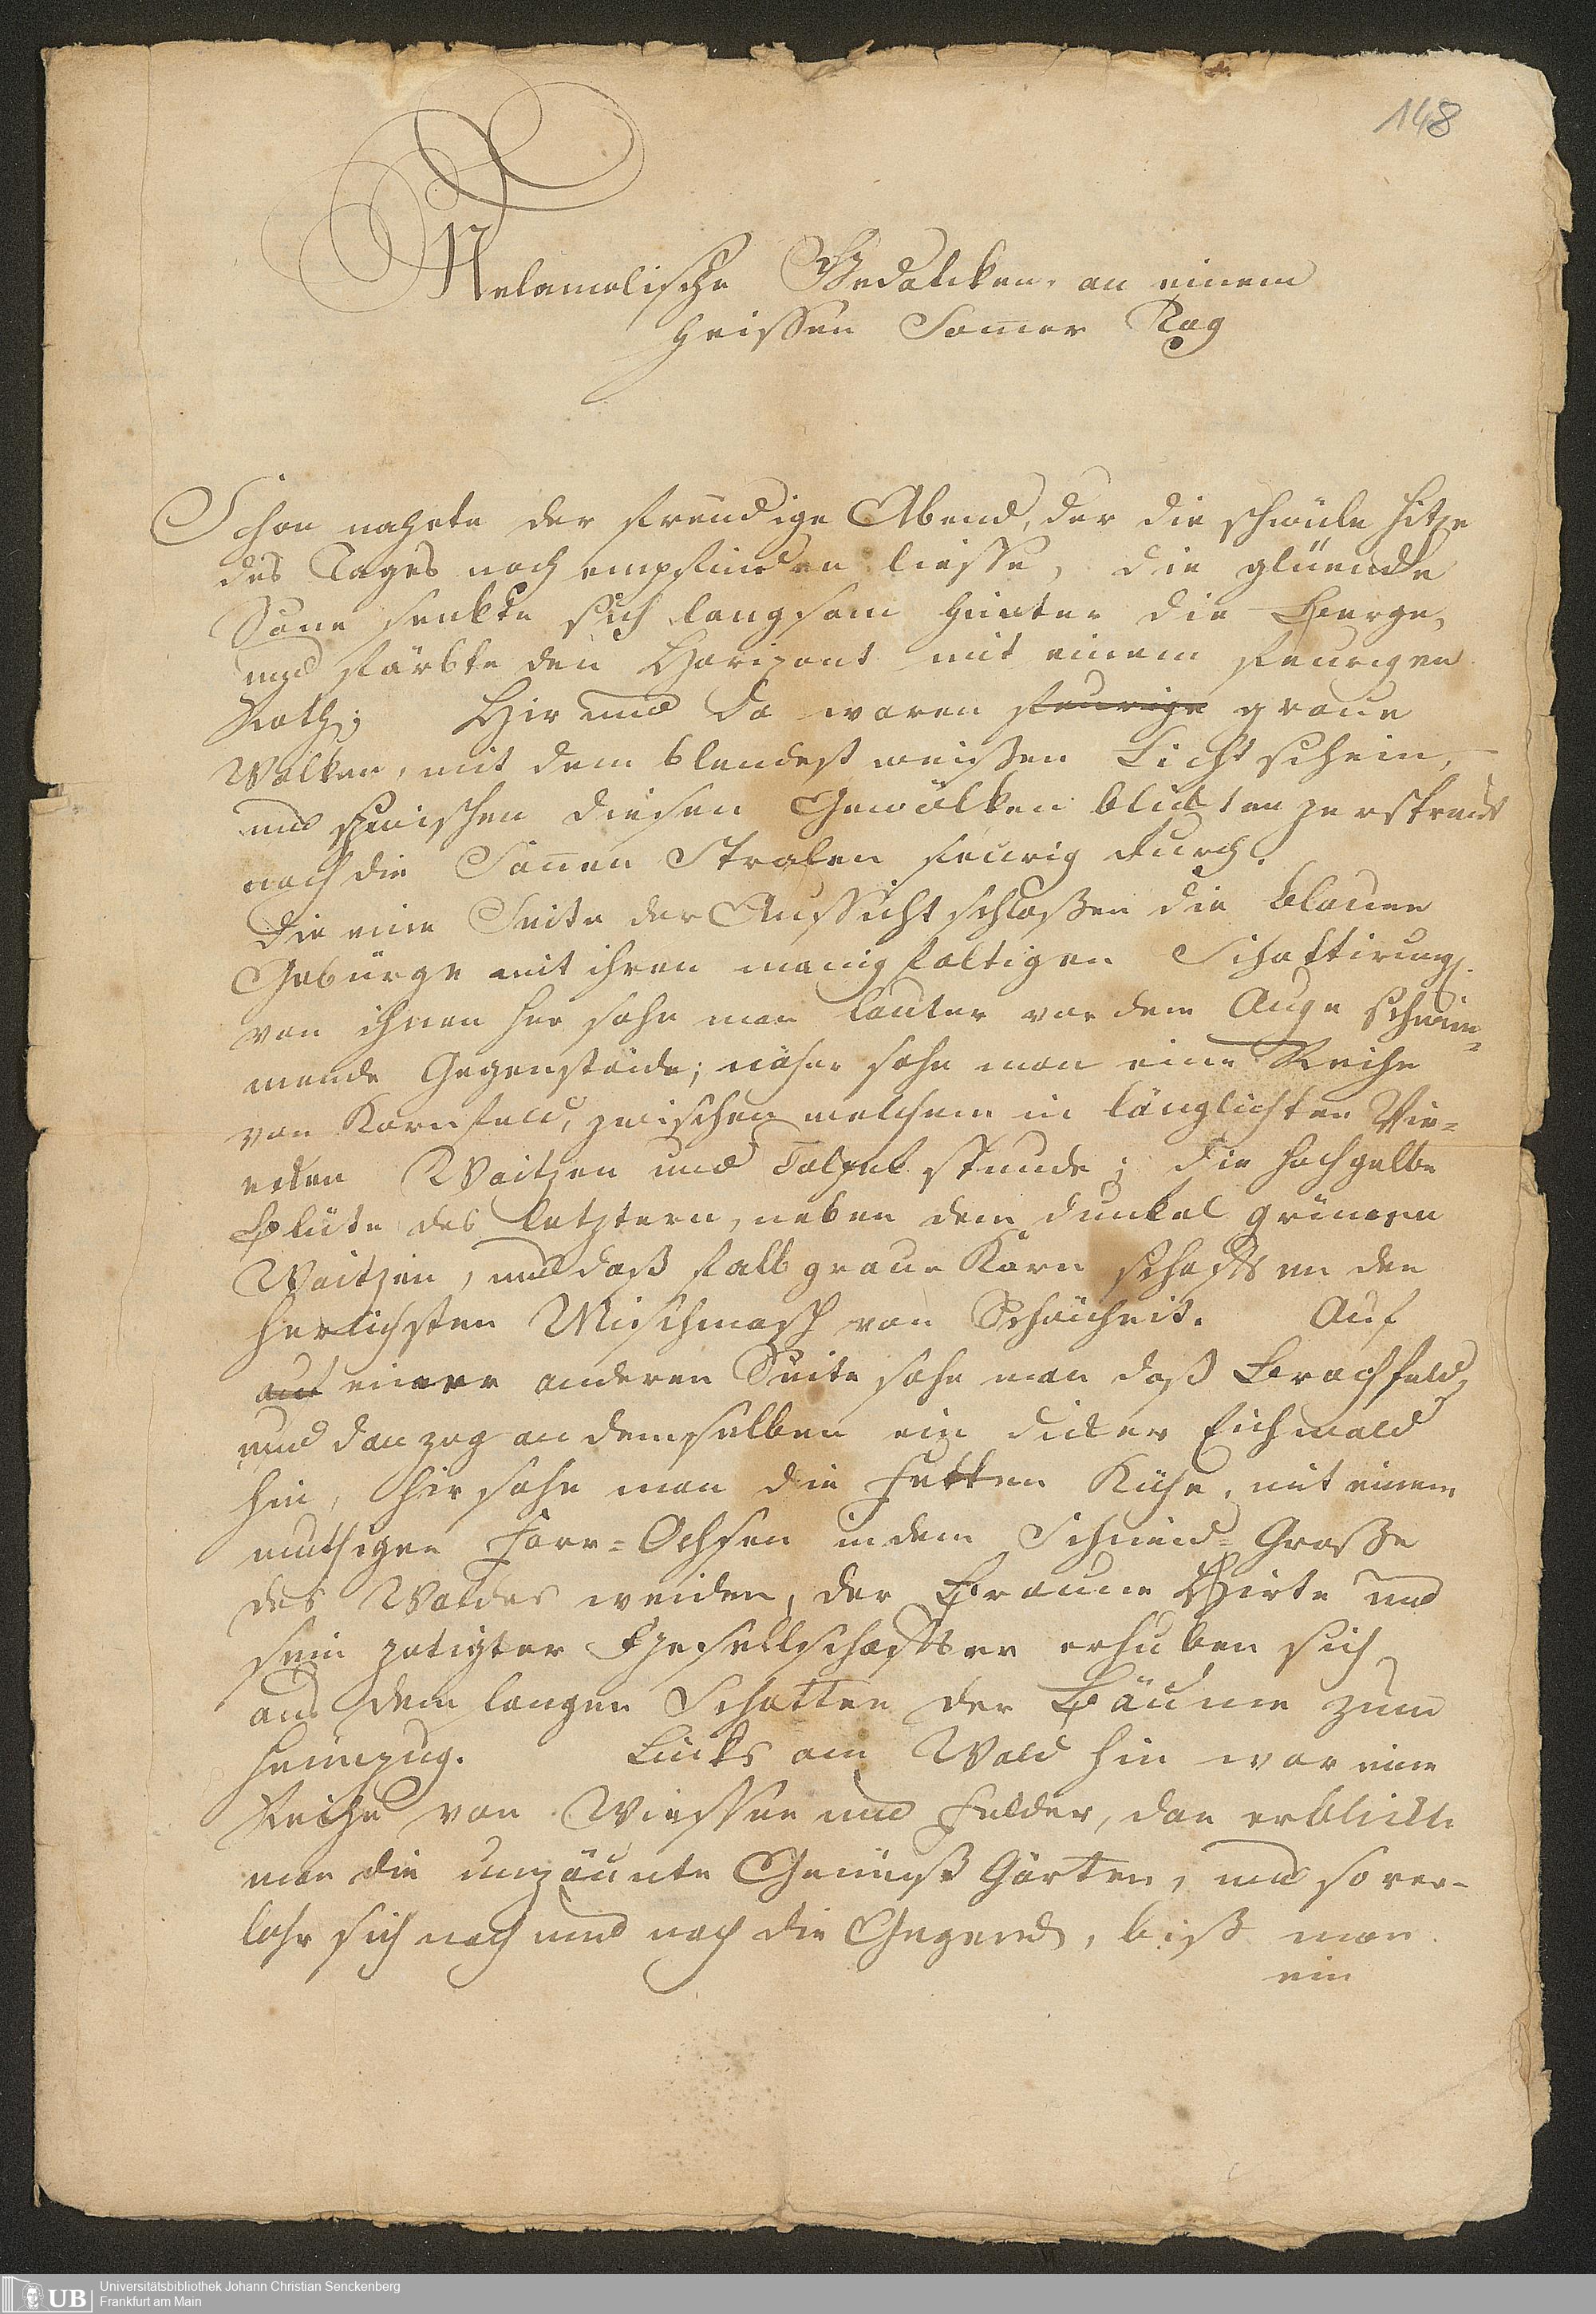 148
Melamolische Gedalcken, an einem
heissen Som̄er Tag
Schon nahete der freudige Abend, der die schwüle Hitze
des Tages noch empfinden liesse, die glüende
Son̄e senkte sich langsam hinter die Berge,
und färbte den Horizont mit einem feurigen
Roth; Hir und da waren feurige graue
Wolken, mit dem blendest weißen Lichtschein,
und zwischen diesen Gewölken blickten zerstreut
noch die Son̄en Stralen feurig durch.
Die eine Seite der Aussicht schloßen die blauen
Gebürge mit ihren manigfaltigen Schattirung.
von ihnen her sahe man lauter vor dem Auge schwim-
mende Gegenstände; näher sahe man eine Reihe
von Kornfeld, zwischen welchem in länglichten Vie-
recken Waitzen und stunde; die hochgelbe
Blüte des letztern, neben dem dunkel grünen
Waitzen, und daß falb graue Korn schafften den
herlichsten Mischmasch von Schönheit. Auf
auf einer anderen Seite sahe man daß Brachfeld,
und dan zog an demselben ein dicker Eichwald
hin, hir sahe man die fetten Kühe, mit einem
muthigen Farr-Ochsen in dem Schneid-Graße
des Waldes weiden, der Braune Hirte und
sein zotigter Gesellschaffter erhuben sich
aus dem langen Schatten der Bäume zum
Heimzug. Lincks am Wald hin war eine
Reihe von Wiessen und Felder, dan erblickte
man die umzäunte Gemüß Gärten, und so ver-
lohr sich nach und nach die Gegend, biß man
ein
Universitätsbibliothek Johann Christian Senckenberg
UB Frankfurt am Main